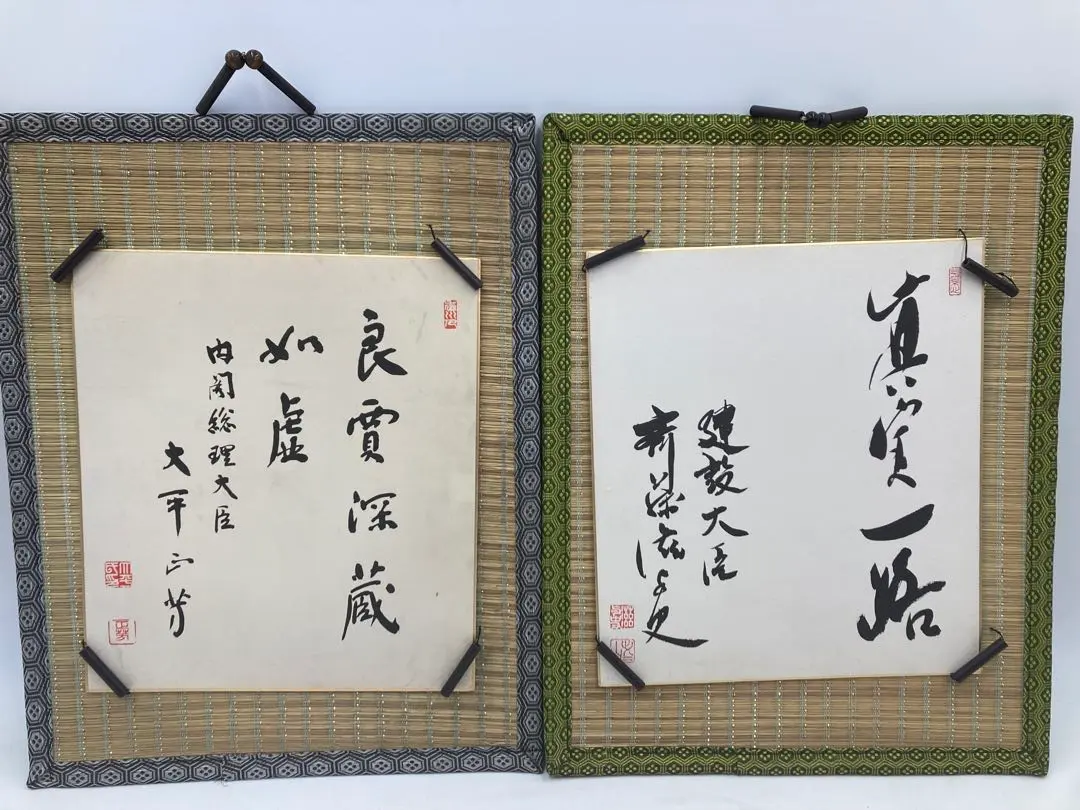 良賈深蔵
如虚
内閣総理大臣
大平正芳
真実一路
建設大臣
斉藤滋与史